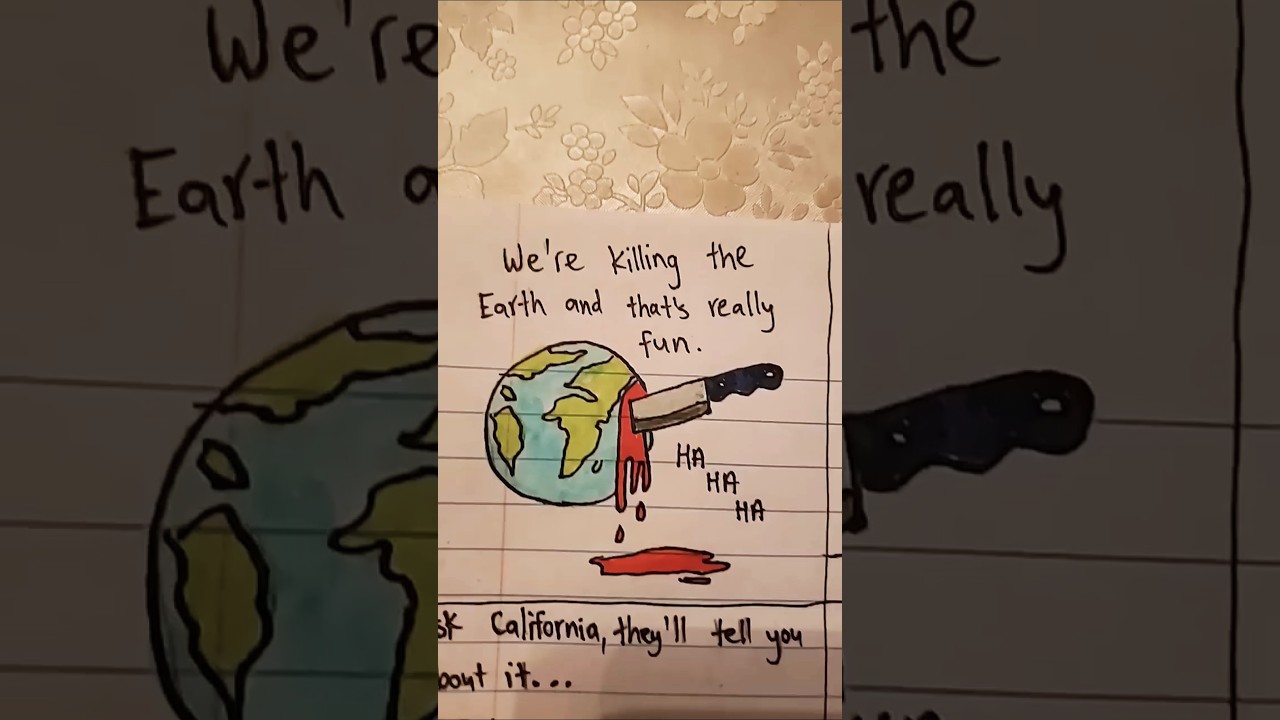 We're killing the
Earth and that's really
fun.
HA
HA
HA
California, they'll tell you
it...